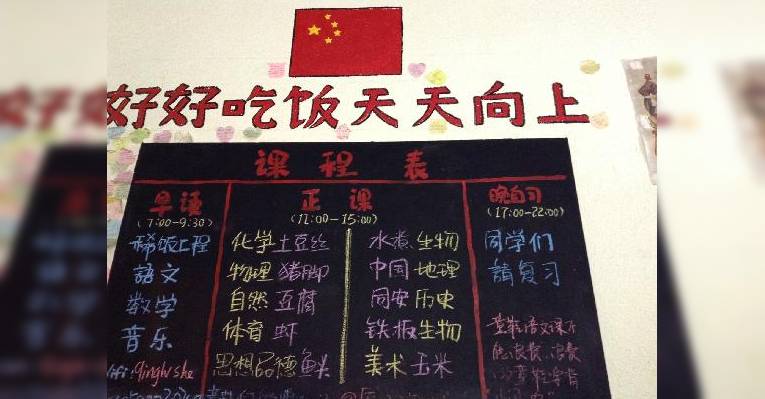 好好吃饭天天向上
课程表
早课 正课 晚自习
(7:00-9:30) (11:00-15:00) (17:00-22:00)
稀饭工程 化学土豆丝 水煮生物 同学们
語文 物理猪脚 中国地理 請复习
数学 自然豆腐 同安历史
音乐 体育虾 铁板生物
思想品德鱼头 美术玉米